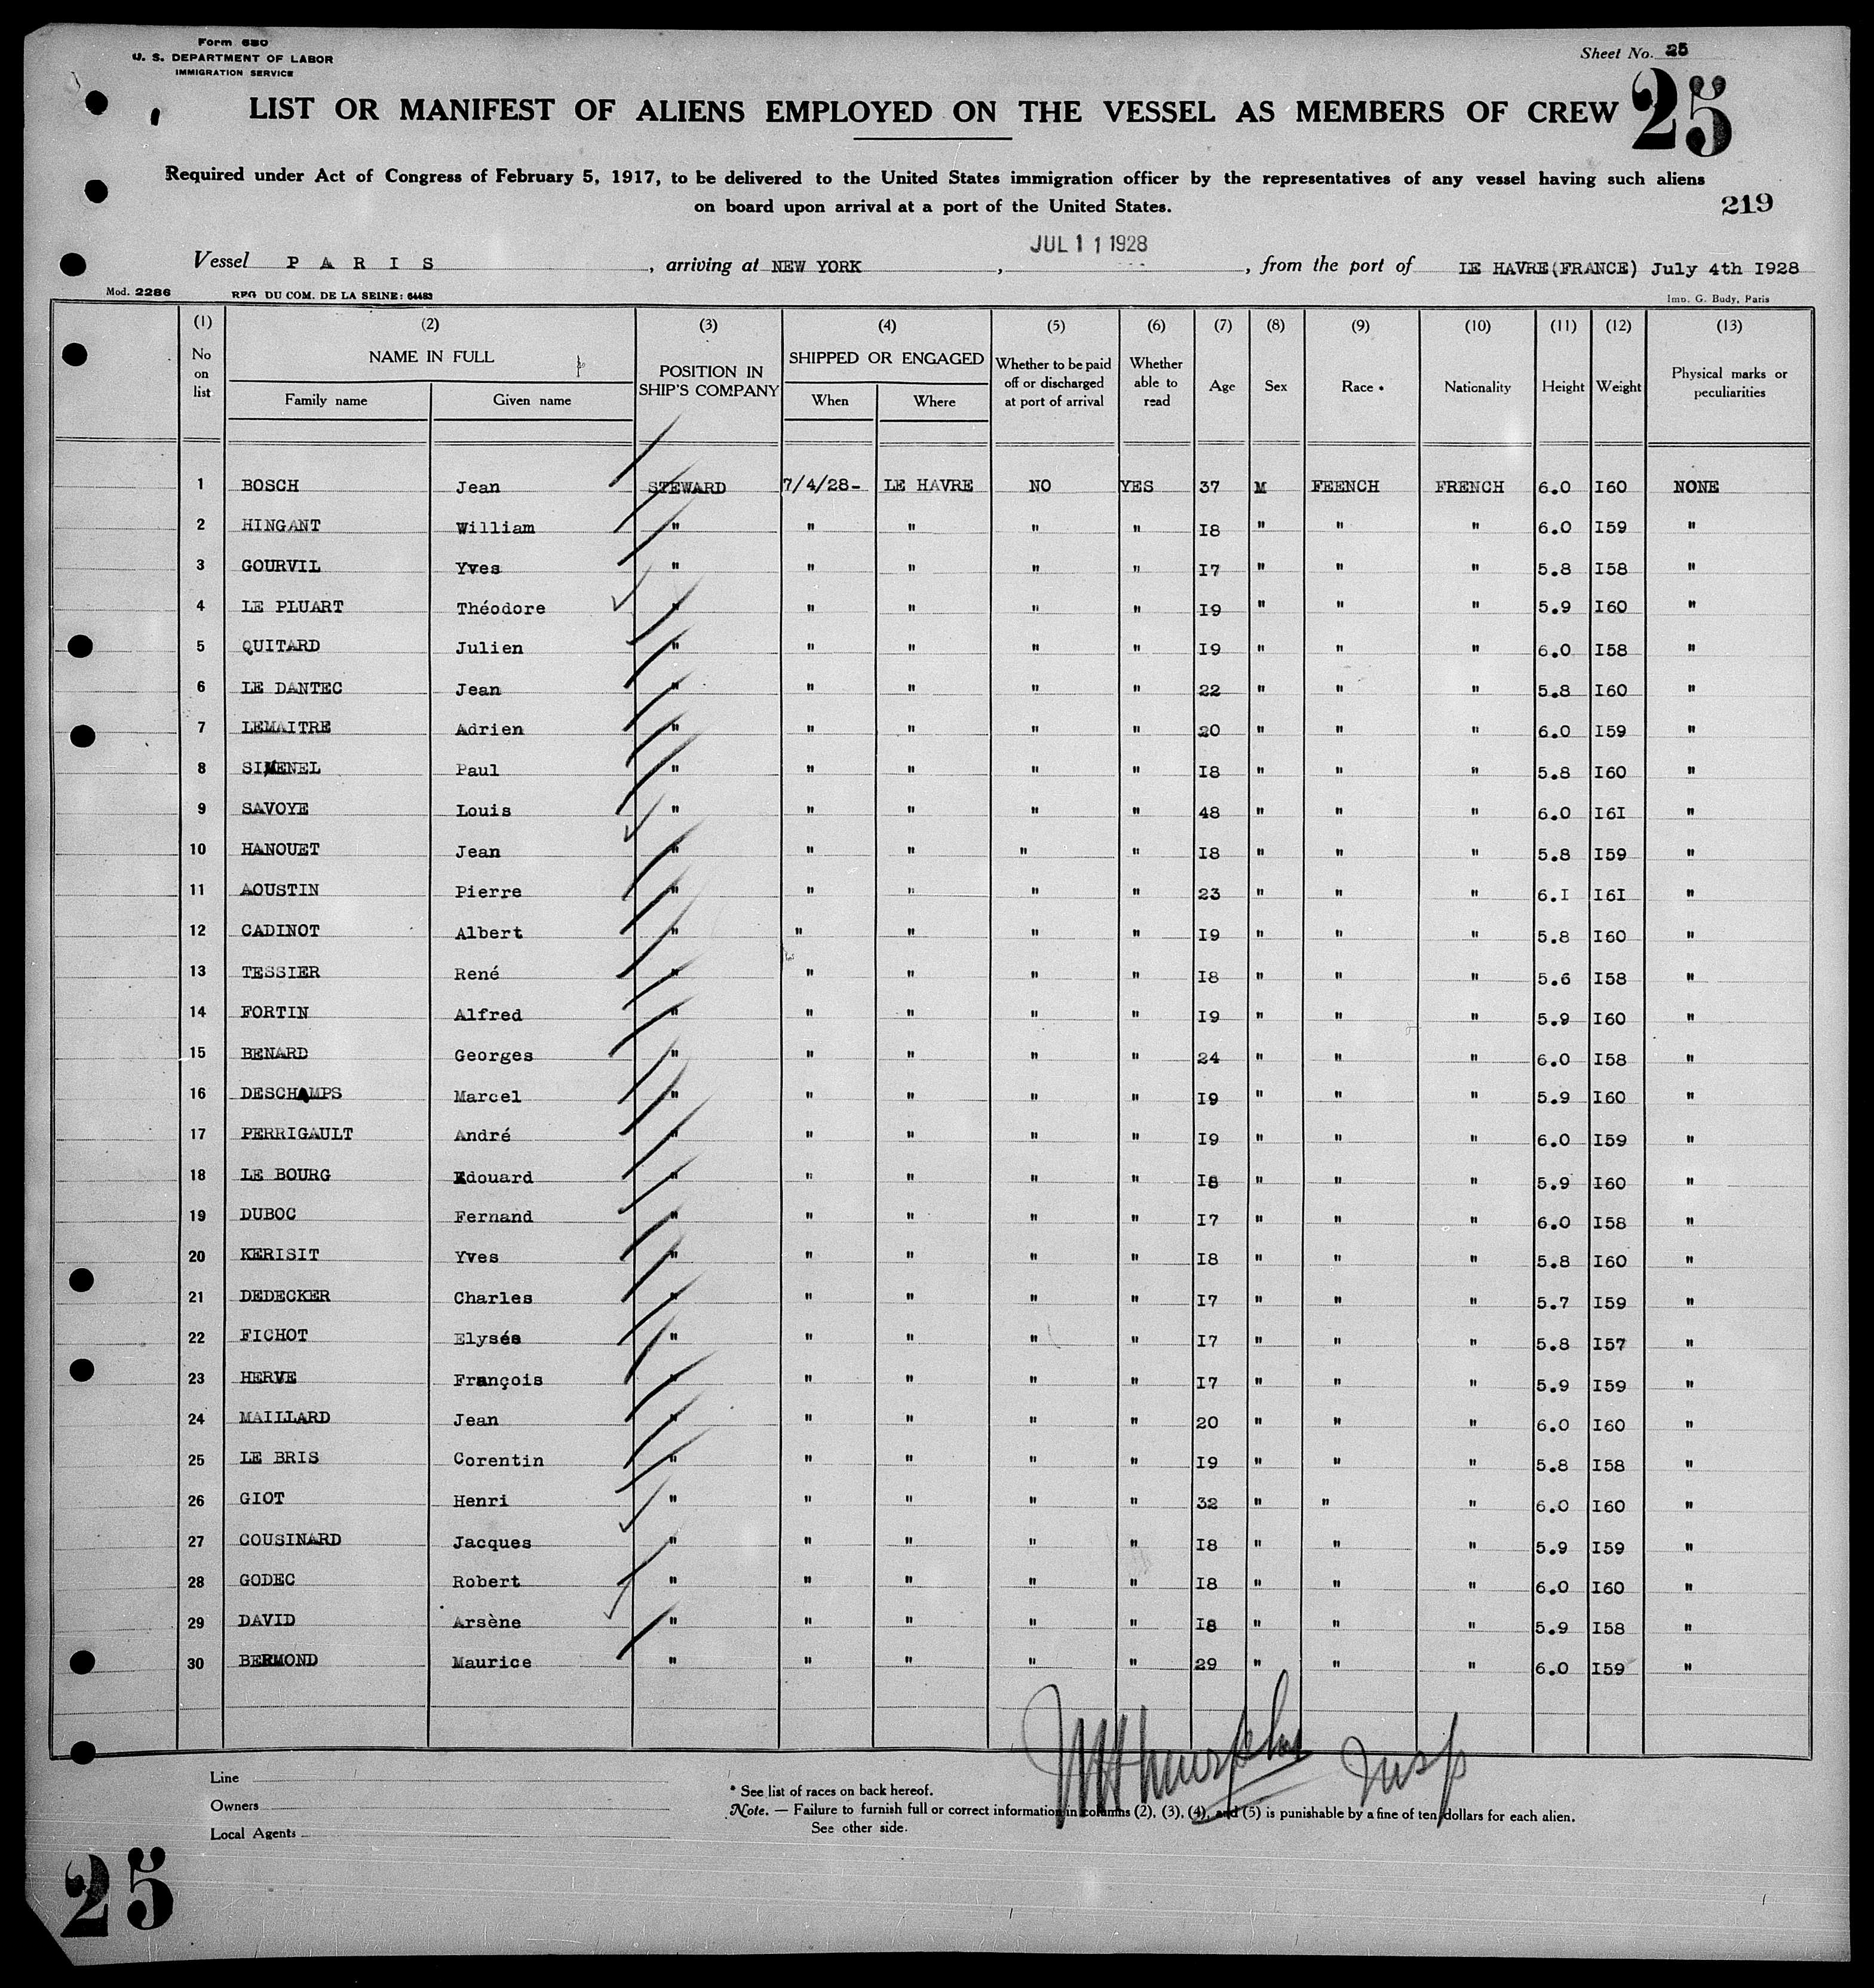 Form 680
U. S. DEPARTMENT OF LABOR
IMMIGRATION SERVICE
Sheet No. 25
25
LIST OR MANIFEST OF ALIENS EMPLOYED ON THE VESSEL AS MEMBERS OF CREW
Required under Act of Congress of February 5, 1917, to be delivered to the United States immigration officer by the representatives of any vessel having such aliens
on board upon arrival at a port of the United States.
219
JUL 11 1928
Vessel P A R I S, arriving at NEW YORK, , from the port of LE HAVRE(FRANCE) July 4th I928
Mod. 2286 REG. DU COM. DE LA SEINE: 64483 Imp. G. Budy, Paris
(1) (2) (3) (4) (5) (6) (7) (8) (9) (10) (11) (12) (13)
No on list NAME IN FULL Family name Given name POSITION IN SHIP'S COMPANY SHIPPED OR ENGAGED When Where Whether to be paid off or discharged at port of arrival Whether able to read Age Sex Race * Nationality Height Weight Physical marks or peculiarities
1 BOSCH Jean STEWARD 7/4/28- LE HAVRE NO YES 37 M FEENCH FRENCH 6.0 I60 NONE
2 HINGANT William " " " " " I8 " " " 6.0 I59 "
3 GOURVIL Yves " " " " " I7 " " " 5.8 I58 "
4 LE PLUART Théodore " " " " " I9 " " " 5.9 I60 "
5 QUITARD Julien " " " " " I9 " " " 6.0 I58 "
6 LE DANTEC Jean " " " " " 22 " " " 5.8 I60 "
7 LEMAITRE Adrien " " " " " 20 " " " 6.0 I59 "
8 SIMENEL Paul " " " " " I8 " " " 5.8 I60 "
9 SAVOYE Louis " " " " " 48 " " " 6.0 I6I "
10 HANOUET Jean " " " " " I8 " " " 5.8 I59 "
11 AOUSTIN Pierre " " " " " 23 " " " 6.I I6I "
12 CADINOT Albert " " " " " I9 " " " 5.8 I60 "
13 TESSIER René " " " " " I8 " " " 5.6 I58 "
14 FORTIN Alfred " " " " " I9 " " " 5.9 I60 "
15 BENARD Georges " " " " " 24 " " " 6.0 I58 "
16 DESCHAMPS Marcel " " " " " I9 " " " 5.9 I60 "
17 PERRIGAULT André " " " " " I9 " " " 6.0 I59 "
18 LE BOURG Edouard " " " " " I8 " " " 5.9 I60 "
19 DUBOC Fernand " " " " " I7 " " " 6.0 I58 "
20 KERISIT Yves " " " " " I8 " " " 5.8 I60 "
21 DEDECKER Charles " " " " " I7 " " " 5.7 I59 "
22 FICHOT Elysée " " " " " I7 " " " 5.8 I57 "
23 HERVE François " " " " " I7 " " " 5.9 I59 "
24 MAILLARD Jean " " " " " 20 " " " 6.0 I60 "
25 LE BRIS Corentin " " " " " I9 " " " 5.8 I58 "
26 GIOT Henri " " " " " 32 " " " 6.0 I60 "
27 COUSINARD Jacques " " " " " I8 " " " 5.9 I59 "
28 GODEC Robert " " " " " I8 " " " 6.0 I60 "
29 DAVID Arsène " " " " " I8 " " " 5.9 I58 "
30 BERMOND Maurice " " " " " 29 " " " 6.0 I59 "
Insp
Line
Owners
Local Agents
* See list of races on back hereof.
Note. — Failure to furnish full or correct information in columns (2), (3), (4), and (5) is punishable by a fine of ten dollars for each alien.
See other side.
25